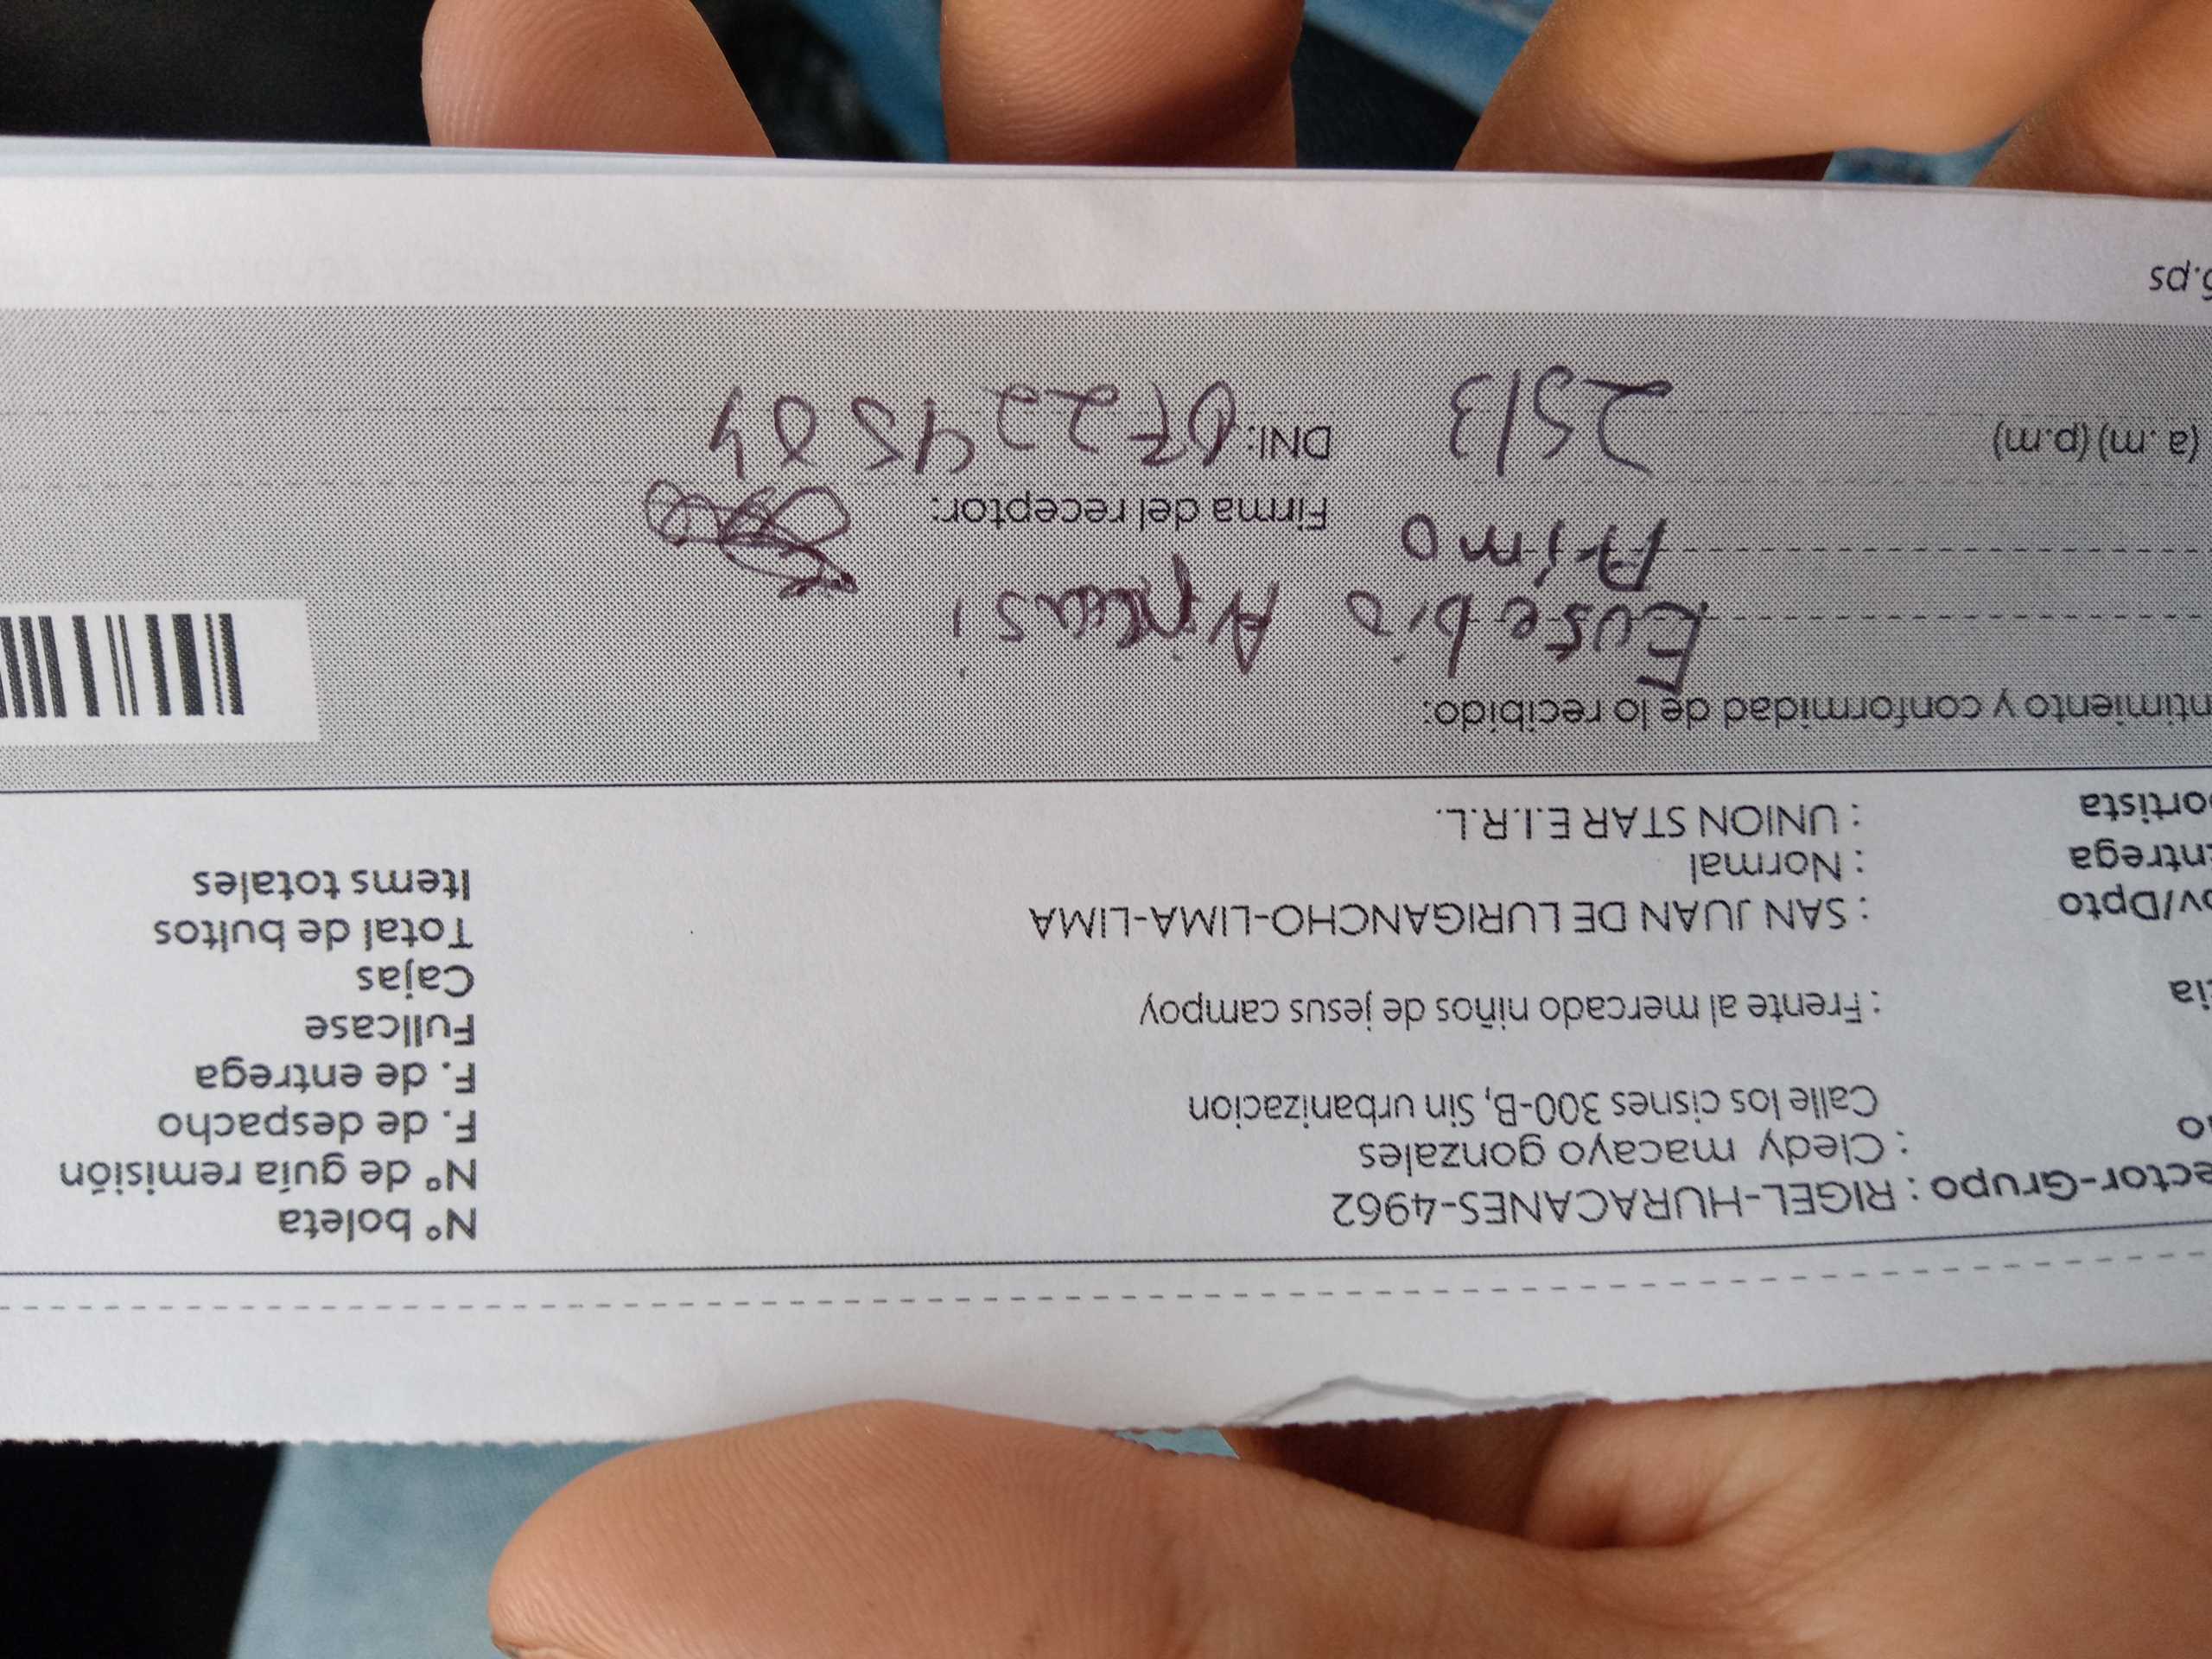 ector-Grupo : RIGEL-HURACANES-4962
: Cledy macayo gonzales
Calle los cisnes 300-B, Sin urbanizacion
cia : Frente al mercado niños de jesus campoy
ov/Dpto : SAN JUAN DE LURIGANCHO-LIMA-LIMA
ntrega : Normal
ortista : UNION STAR E.I.R.L.
N° boleta
N° de guía remisión
F. de despacho
F. de entrega
Fullcase
Cajas
Total de bultos
Items totales
ntimiento y conformidad de lo recibido:
Eusebio
Arimo
Firma del receptor:
(a .m) (p.m) 25/3 DNI: